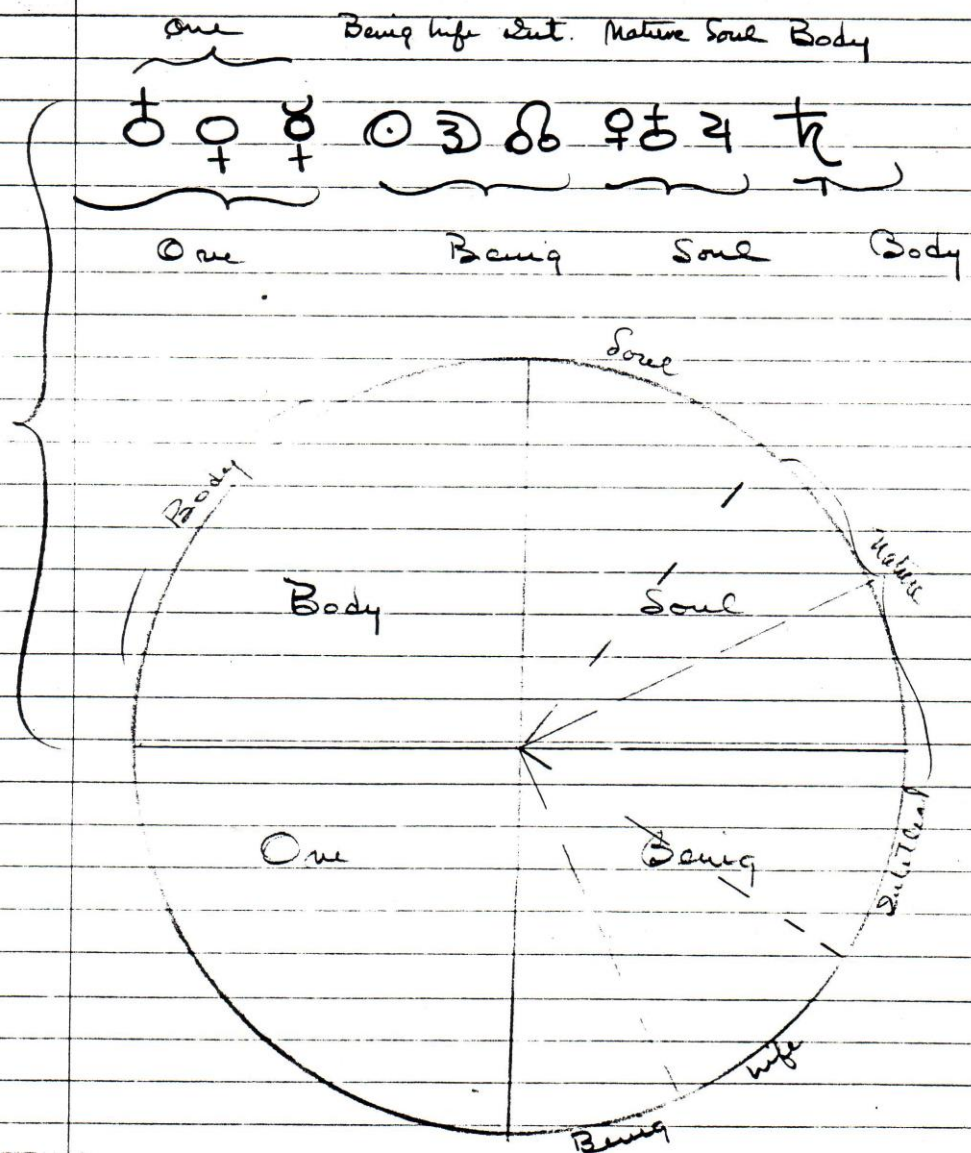 One Being Life Int. Nature Soul Body
♁ ♀ ☿ ☉ ☽ ☊ ♀ ♁ ♃ ♄
One Being Soul Body
Soul
Body
Nature
Body Soul
One Being
Life
Being